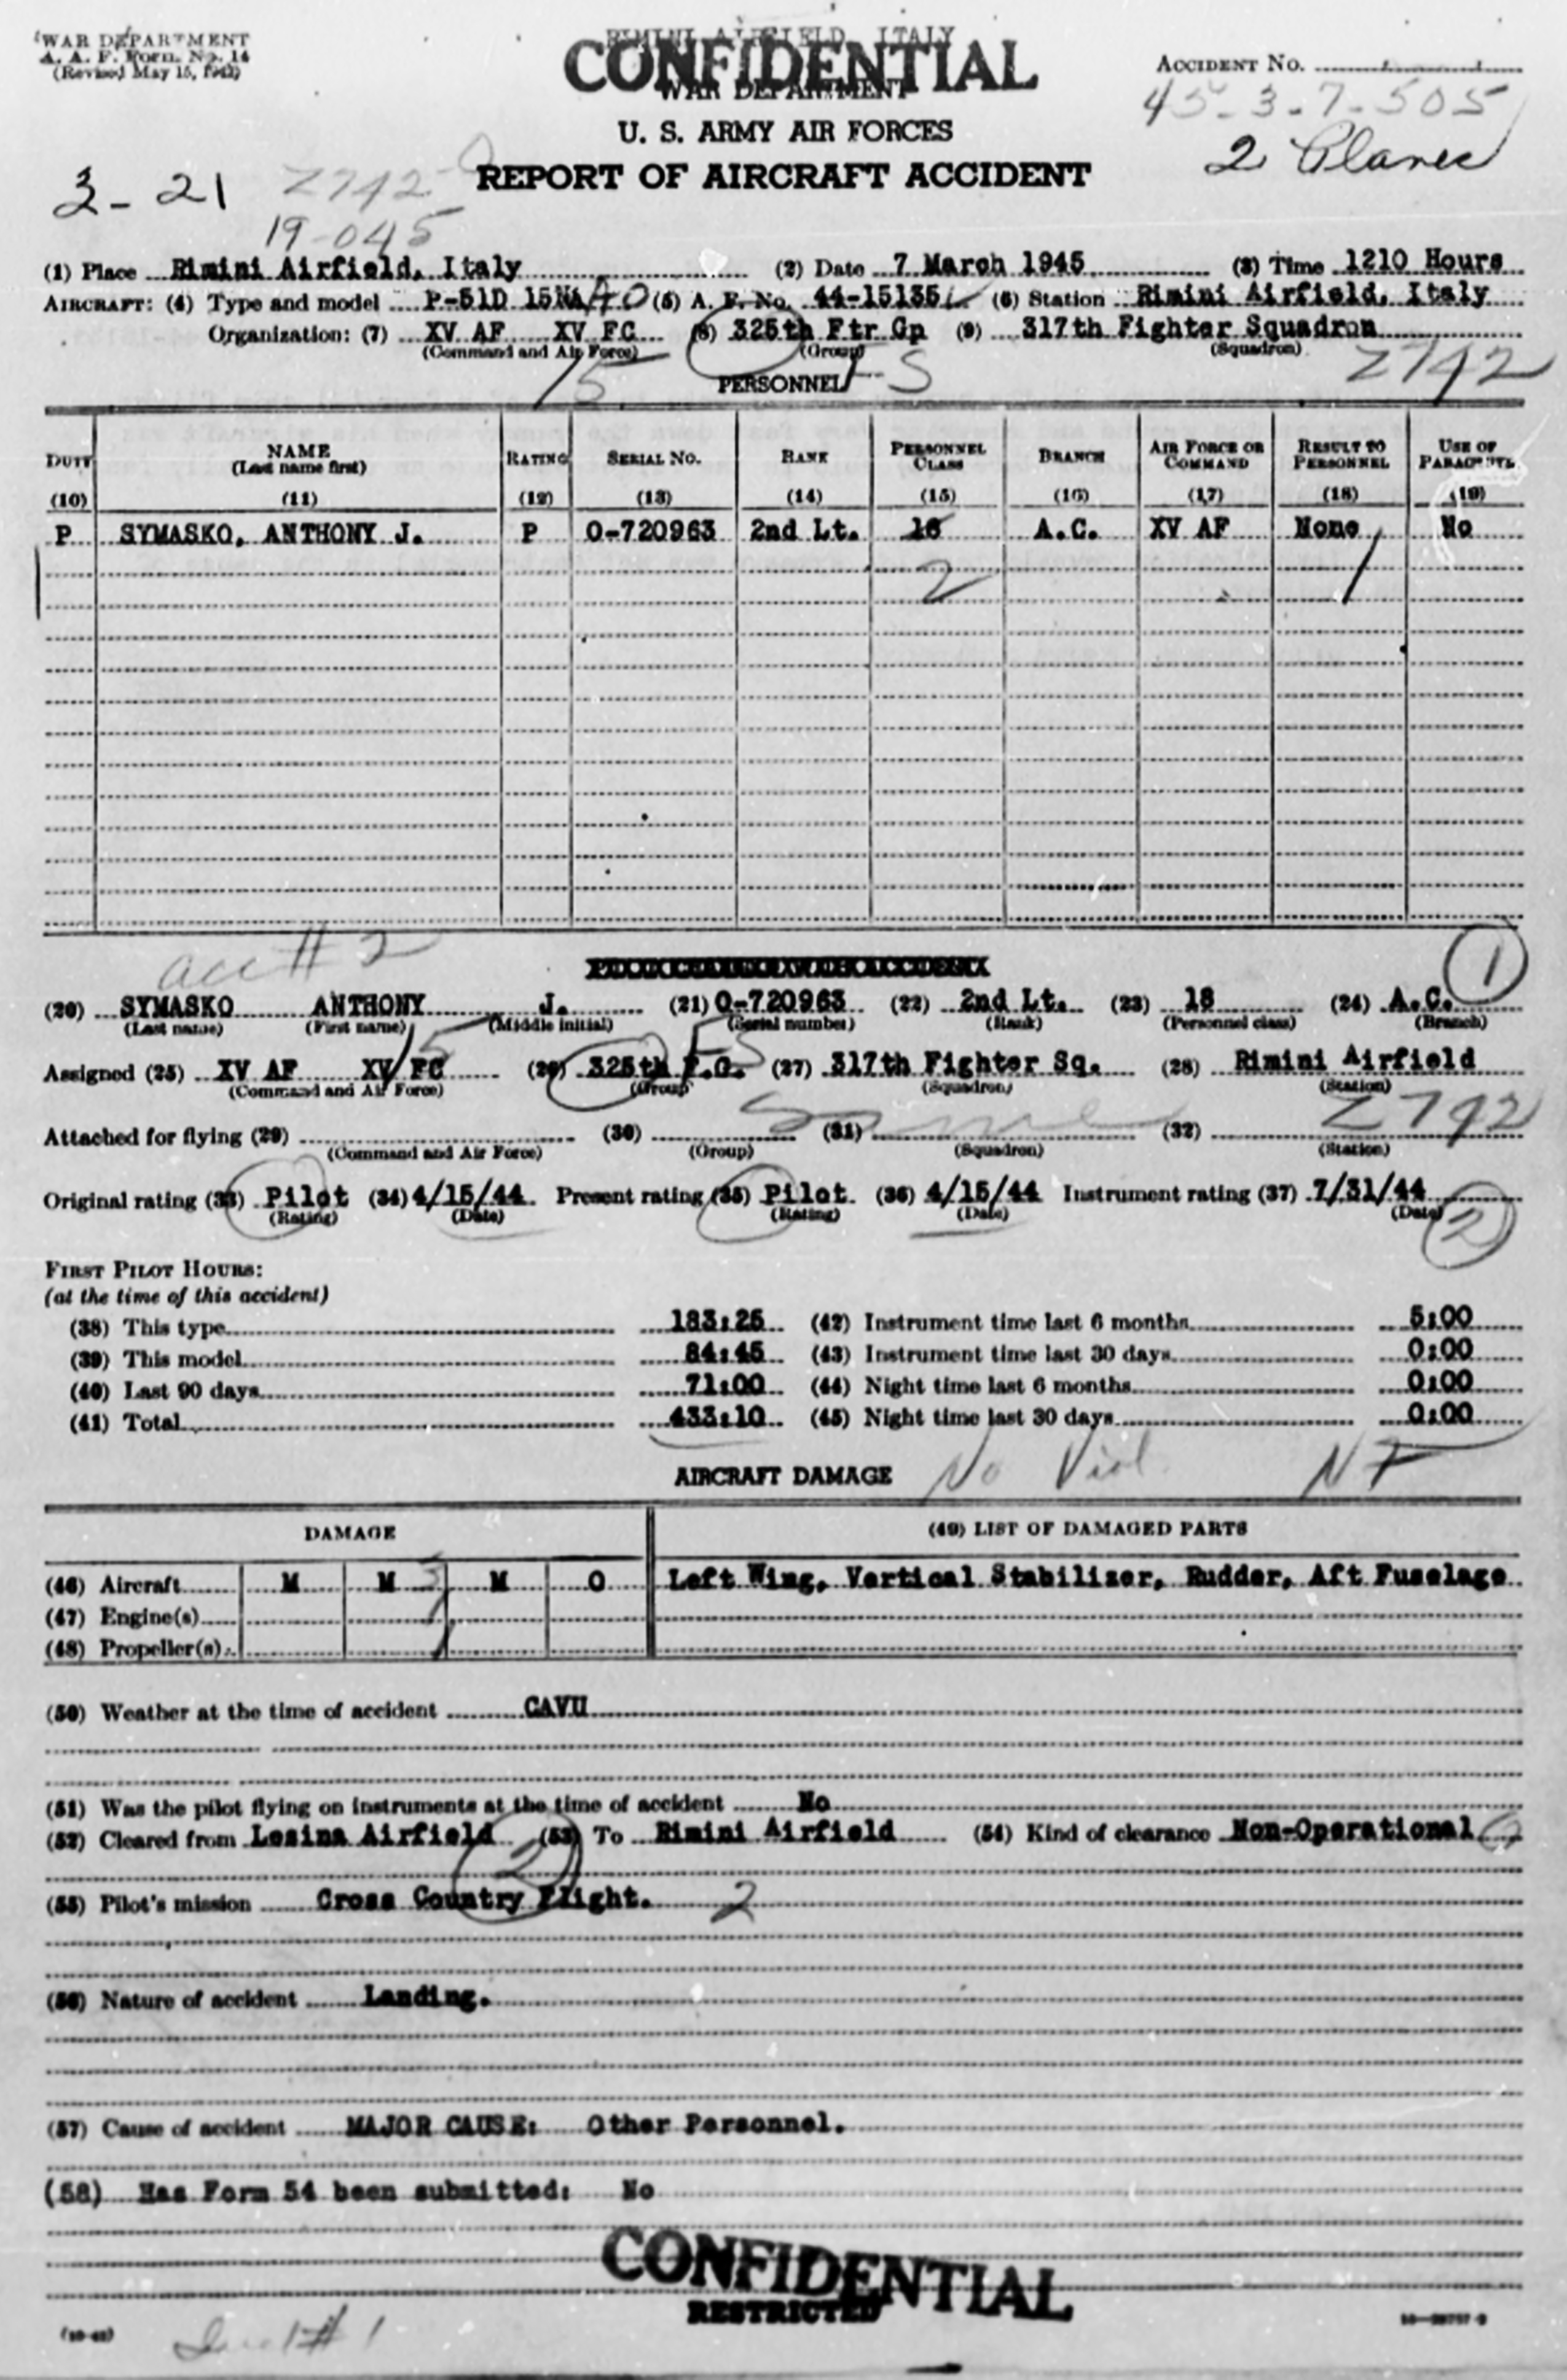 WAR DEPARTMENT
A. A. F. Form. No. 14
(Revised May 15, 1942)
RIMINI AIRFIELD, ITALY
CONFIDENTIAL
WAR DEPARTMENT
U. S. ARMY AIR FORCES
REPORT OF AIRCRAFT ACCIDENT
ACCIDENT NO.
45-3-7-505
2 Planes
3-21 2742
19-045
(1) Place Rimini Airfield, Italy (2) Date 7 March 1945 (3) Time 1210 Hours
AIRCRAFT: (4) Type and model P-51D 15NA (5) A. F. No. 44-15135 (6) Station Rimini Airfield, Italy
Organization: (7) XV AF XV FC (8) 325th Ftr Gp (9) 317th Fighter Squadron
(Command and Air Force) (Group) (Squadron)
15 PERSONNEL FS 2742
DUTY NAME RATING SERIAL NO. RANK PERSONNEL CLASS BRANCH AIR FORCE OR COMMAND RESULT TO PERSONNEL USE OF PARACHUTE
(Last name first)
(10) (11) (12) (13) (14) (15) (16) (17) (18) (19)
P SYMASKO, ANTHONY J. P O-720963 2nd Lt. 18 A.C. XV AF None No
2 1
acc # 2 1
(20) SYMASKO ANTHONY J. (21) O-720963 (22) 2nd Lt. (23) 18 (24) A.C.
(Last name) (First name) (Middle initial) (Serial number) (Rank) (Personnel class) (Branch)
15 FS
Assigned (25) XV AF XV FC (26) 325th F.G. (27) 317th Fighter Sq. (28) Rimini Airfield
(Command and Air Force) (Group) (Squadron) (Station)
Same 2742
Attached for flying (29) (30) (31) (32)
(Command and Air Force) (Group) (Squadron) (Station)
Original rating (33) Pilot (34) 4/15/44 Present rating (35) Pilot (36) 4/15/44 Instrument rating (37) 7/31/44
(Rating) (Date) (Rating) (Date) (Date)
2
FIRST PILOT HOURS:
(at the time of this accident)
(38) This type 183:25 (42) Instrument time last 6 months 5:00
(39) This model 84:45 (43) Instrument time last 30 days 0:00
(40) Last 90 days 71:00 (44) Night time last 6 months 0:00
(41) Total 433:10 (45) Night time last 30 days 0:00
AIRCRAFT DAMAGE No Viol. NF
DAMAGE (49) LIST OF DAMAGED PARTS
(46) Aircraft M M M O Left Wing, Vertical Stabilizer, Rudder, Aft Fuselage
(47) Engine(s)
(48) Propeller(s)
(50) Weather at the time of accident CAVU
(51) Was the pilot flying on instruments at the time of accident No
(52) Cleared from Lesina Airfield (53) To Rimini Airfield (54) Kind of clearance Non-Operational
2
(55) Pilot's mission Cross Country Flight. 2
(56) Nature of accident Landing.
(57) Cause of accident MAJOR CAUSE: Other Personnel.
(58) Has Form 54 been submitted: No
CONFIDENTIAL
RESTRICTED
# 1